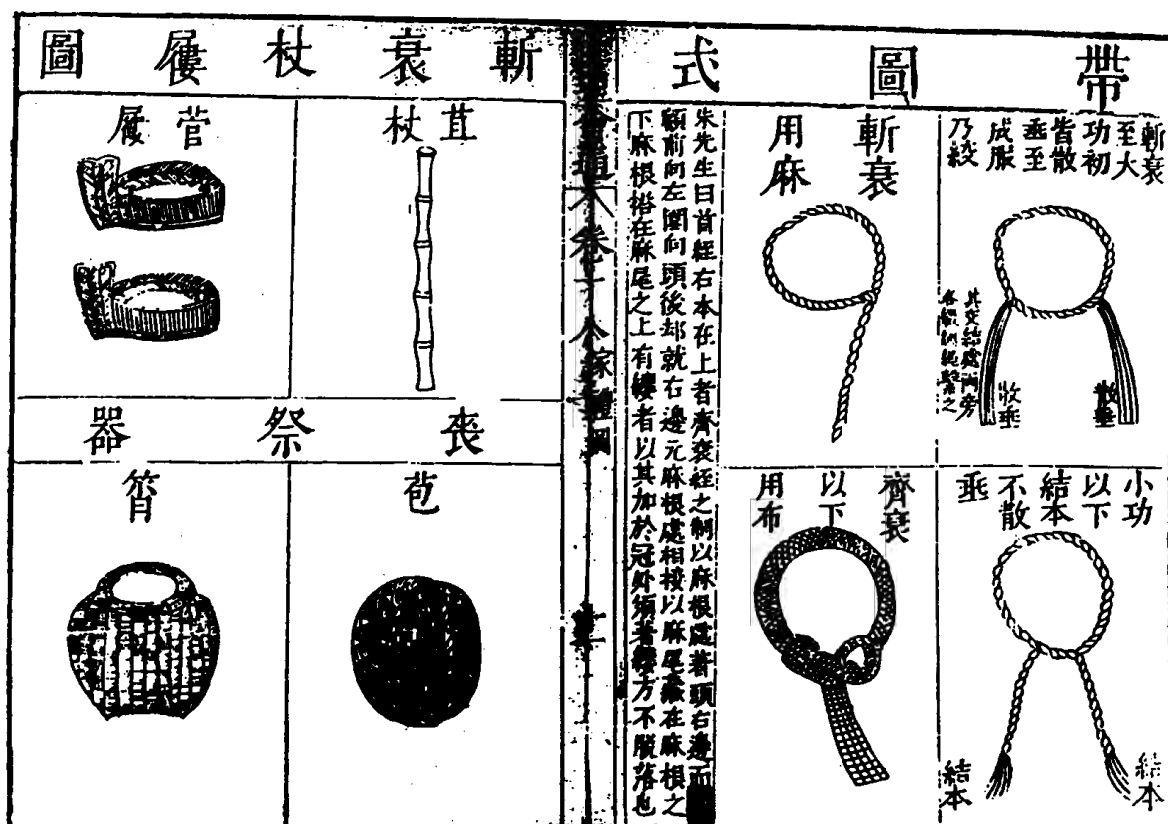 帶圖式
斬衰
至大
功初
皆散
垂至
成服
乃絞
散垂
散垂
其交結處兩旁
各綴細繩繫之
斬衰
用麻
小功
以下
結本
不散
垂
結本
結本
齊衰
以下
用布
朱先生曰首絰右本在上者齊衰絰之制以麻根處著頭右邊而
額前向左圍向頭後却就右邊元麻根處相接以麻尾藏在麻根之
下麻根搭在麻尾之上有纓者以其加於冠外須著纓方不脫落也
斬衰杖屨圖
苴杖
菅屨
喪祭器
苞
筲